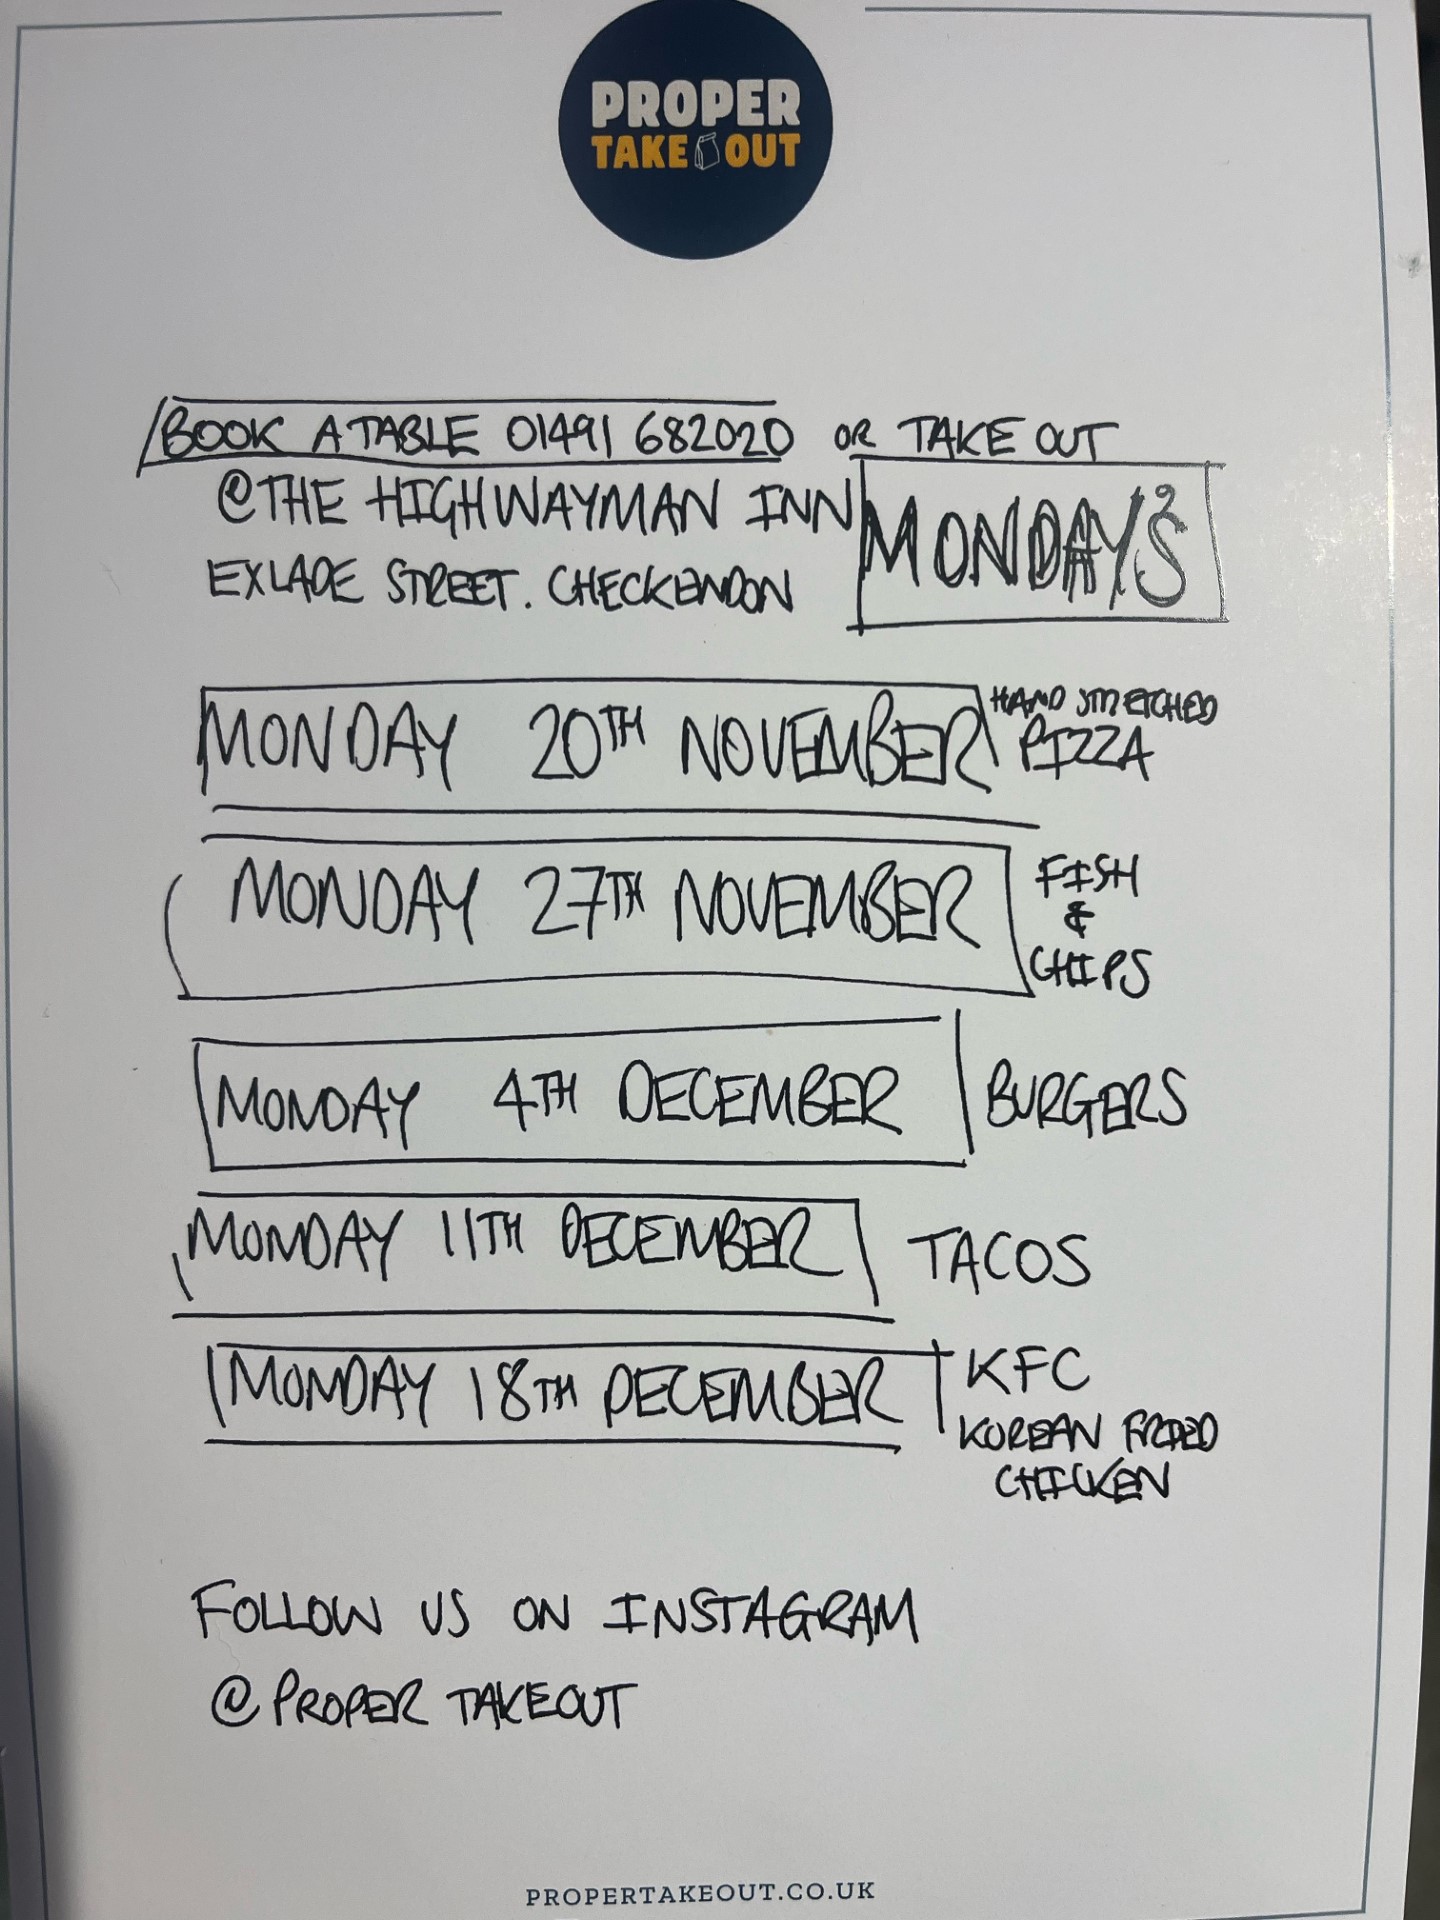 PROPER
TAKE OUT
BOOK A TABLE 01491 682020 OR TAKE OUT
@THE HIGHWAYMAN INN
EXLADE STREET. CHECKENDON
MONDAY'S
MONDAY 20TH NOVEMBER
HAND STRETCHED
PIZZA
MONDAY 27TH NOVEMBER
FISH
&
CHIPS
MONDAY 4TH DECEMBER BURGERS
MONDAY 11TH DECEMBER TACOS
MONDAY 18TH DECEMBER
KFC
KOREAN FRIED
CHICKEN
FOLLOW US ON INSTAGRAM
@ PROPER TAKEOUT
PROPERTAKEOUT.CO.UK